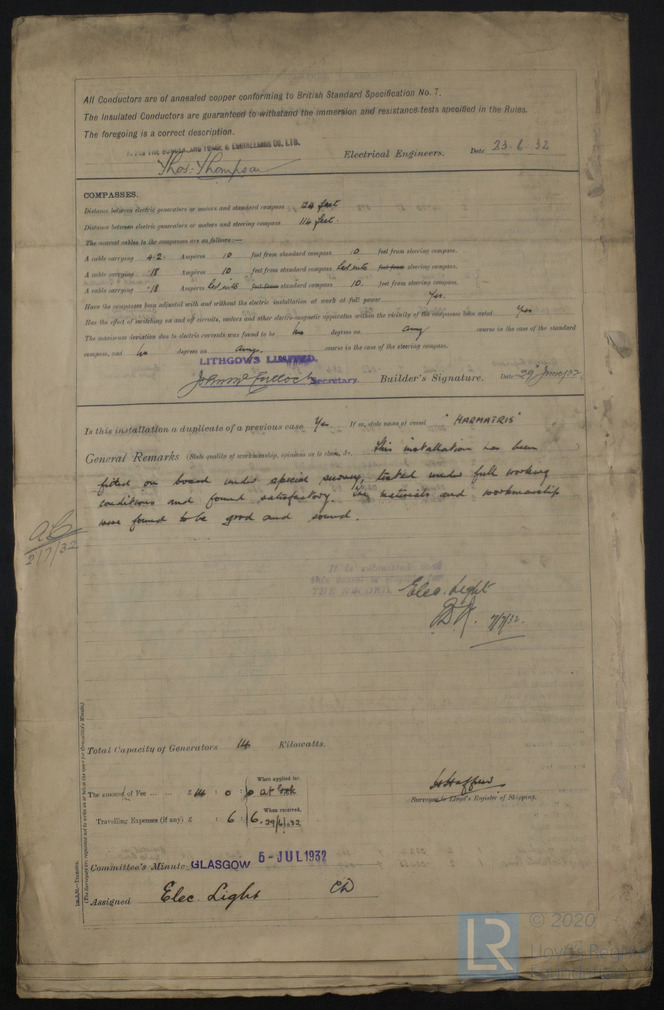 All Conductors are of annealed copper conforming to British Standard Specification No. 7.
The Insulated Conductors are guaranteed to withstand the immersion and resistance tests specified in the Rules.
The foregoing is a correct description.
ENGINEERING CO. LTD.
Thos. Thompson Electrical Engineers. Date 23.6.32
COMPASSES.
Distance between electric generators or motors and standard compass 124 feet
Distance between electric generators or motors and steering compass 114 feet.
The nearest cables to the compasses are as follows:—
A cable carrying 4.2 Ampères 10 feet from standard compass 10 feet from steering compass.
A cable carrying .18 Ampères 10 feet from standard compass led into feet from steering compass.
A cable carrying .18 Ampères led into feet from standard compass 10 feet from steering compass.
Have the compasses been adjusted with and without the electric installation at work at full power Yes.
Has the effect of switching on and off circuits, motors and other electro-magnetic apparatus within the vicinity of the compasses been noted Yes
The maximum deviation due to electric currents was found to be No degrees on any course in the case of the standard
compass, and No degrees on any course in the case of the steering compass.
LITHGOWS LIMITED.
Secretary. Builder's Signature. Date 29 June/32.
Is this installation a duplicate of a previous case Yes If so, state name of vessel "HARMATRIS"
General Remarks (State quality of workmanship, opinions as to class, &c. This installation has been
fitted on board under special survey, tested under full working
conditions and found satisfactory. The materials and workmanship
were found to be good and sound.
2/7/32
It is submitted that
this
THE RECORD
Elec. Light
7/7/32.
Total Capacity of Generators 14 Kilowatts.
When applied for
The amount of Fee ... ... £14 : 0 : 0
When received,
Travelling Expenses (if any) £ : 6 : 6. 29/6/32
Surveyor to Lloyd's Register of Shipping.
Committee's Minute GLASGOW 5-JUL 1932
Assigned Elec. Light
(The Surveyors are requested not to write on or below the space for Committee's Minute.)
LR
© 2020
Lloyd's Register
Foundation